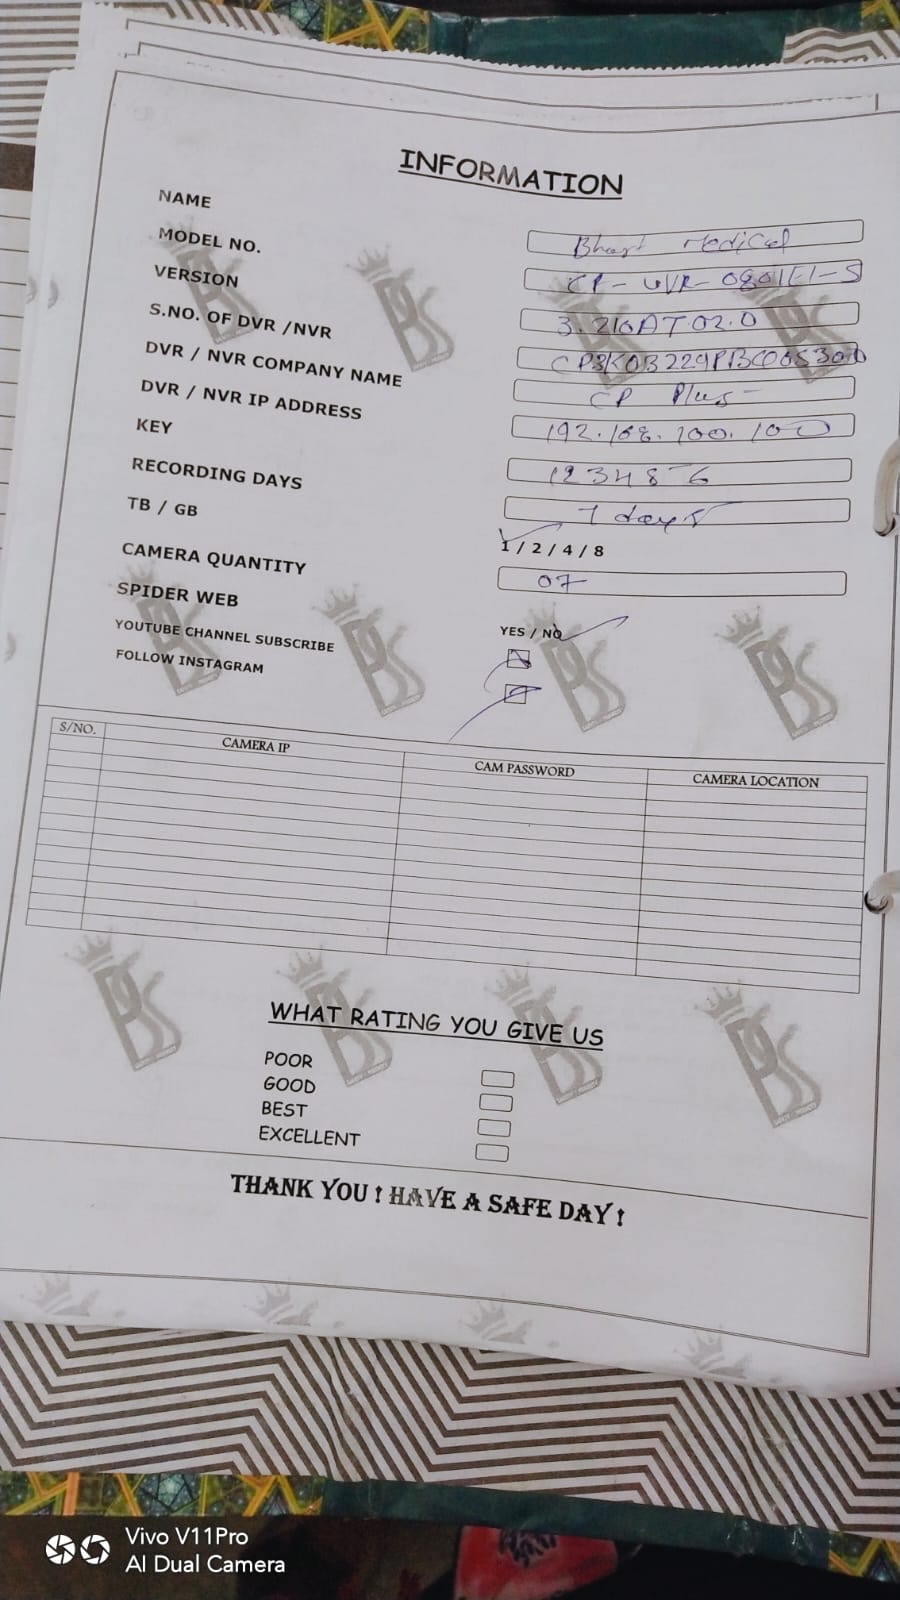 INFORMATION
NAME
Medical
MODEL NO.
CP-UVR-0801E1-S
VERSION
3.210AT02.0
S.NO. OF DVR /NVR
DVR / NVR COMPANY NAME
CP Plus
DVR / NVR IP ADDRESS
192.168.100.100
KEY
RECORDING DAYS
7 days
TB / GB
1 / 2 / 4 / 8
CAMERA QUANTITY
07
SPIDER WEB
YES / NO
YOUTUBE CHANNEL SUBSCRIBE
FOLLOW INSTAGRAM
S/NO. CAMERA IP CAM PASSWORD CAMERA LOCATION
WHAT RATING YOU GIVE US
POOR
GOOD
BEST
EXCELLENT
THANK YOU ! HAVE A SAFE DAY !
Vivo V11Pro
AI Dual Camera